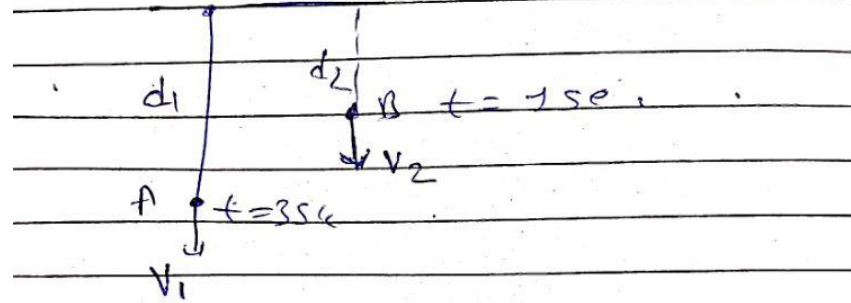 d2
d1
B t = 1 se.
V2
A t = 3 sec
V1